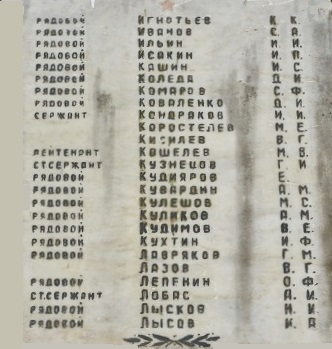 РЯДОВОЙ ИГНОТЬЕВ К. К.
РЯДОВОЙ ИВАНОВ С. А.
РЯДОВОЙ ИЛЬИН И. И.
РЯДОВОЙ ИСАКИН И. П.
РЯДОВОЙ КАШИН И. С.
РЯДОВОЙ КОЛЕДА Д. И.
РЯДОВОЙ КОМАРОВ С. Ф.
РЯДОВОЙ КОВАЛЕНКО Д. И.
СЕРЖАНТ КОНДРАКОВ И. И.
КОРОСТЕЛЕВ М. Е.
КИСИЛЕВ В. Г.
ЛЕНТЕНОНТ КОШЕЛЕВ М. В.
СТ.СЕРЖАНТ КУЗНЕЦОВ Г. И
РЯДОВОЙ КУДИЯРОВ Е.
РЯДОВОЙ КУВАРДИН А. М.
РЯДОВОЙ КУЛЕШОВ М. С.
РЯДОВОЙ КУЛИКОВ А. М.
РЯДОВОЙ КУДИМОВ В. Е.
РЯДОВОЙ КУХТИН И. Ф.
РЯДОВОЙ ЛАВРЯКОВ Г. М.
ЛАЗОВ В. Г.
РЯДОВОЙ ЛЕПЕНИН О. Ф.
СТ.СЕРЖАНТ ЛОБАС А. И.
РЯДОВОЙ ЛЫСКОВ Н. И.
РЯДОВОЙ ЛЫСОВ И. А